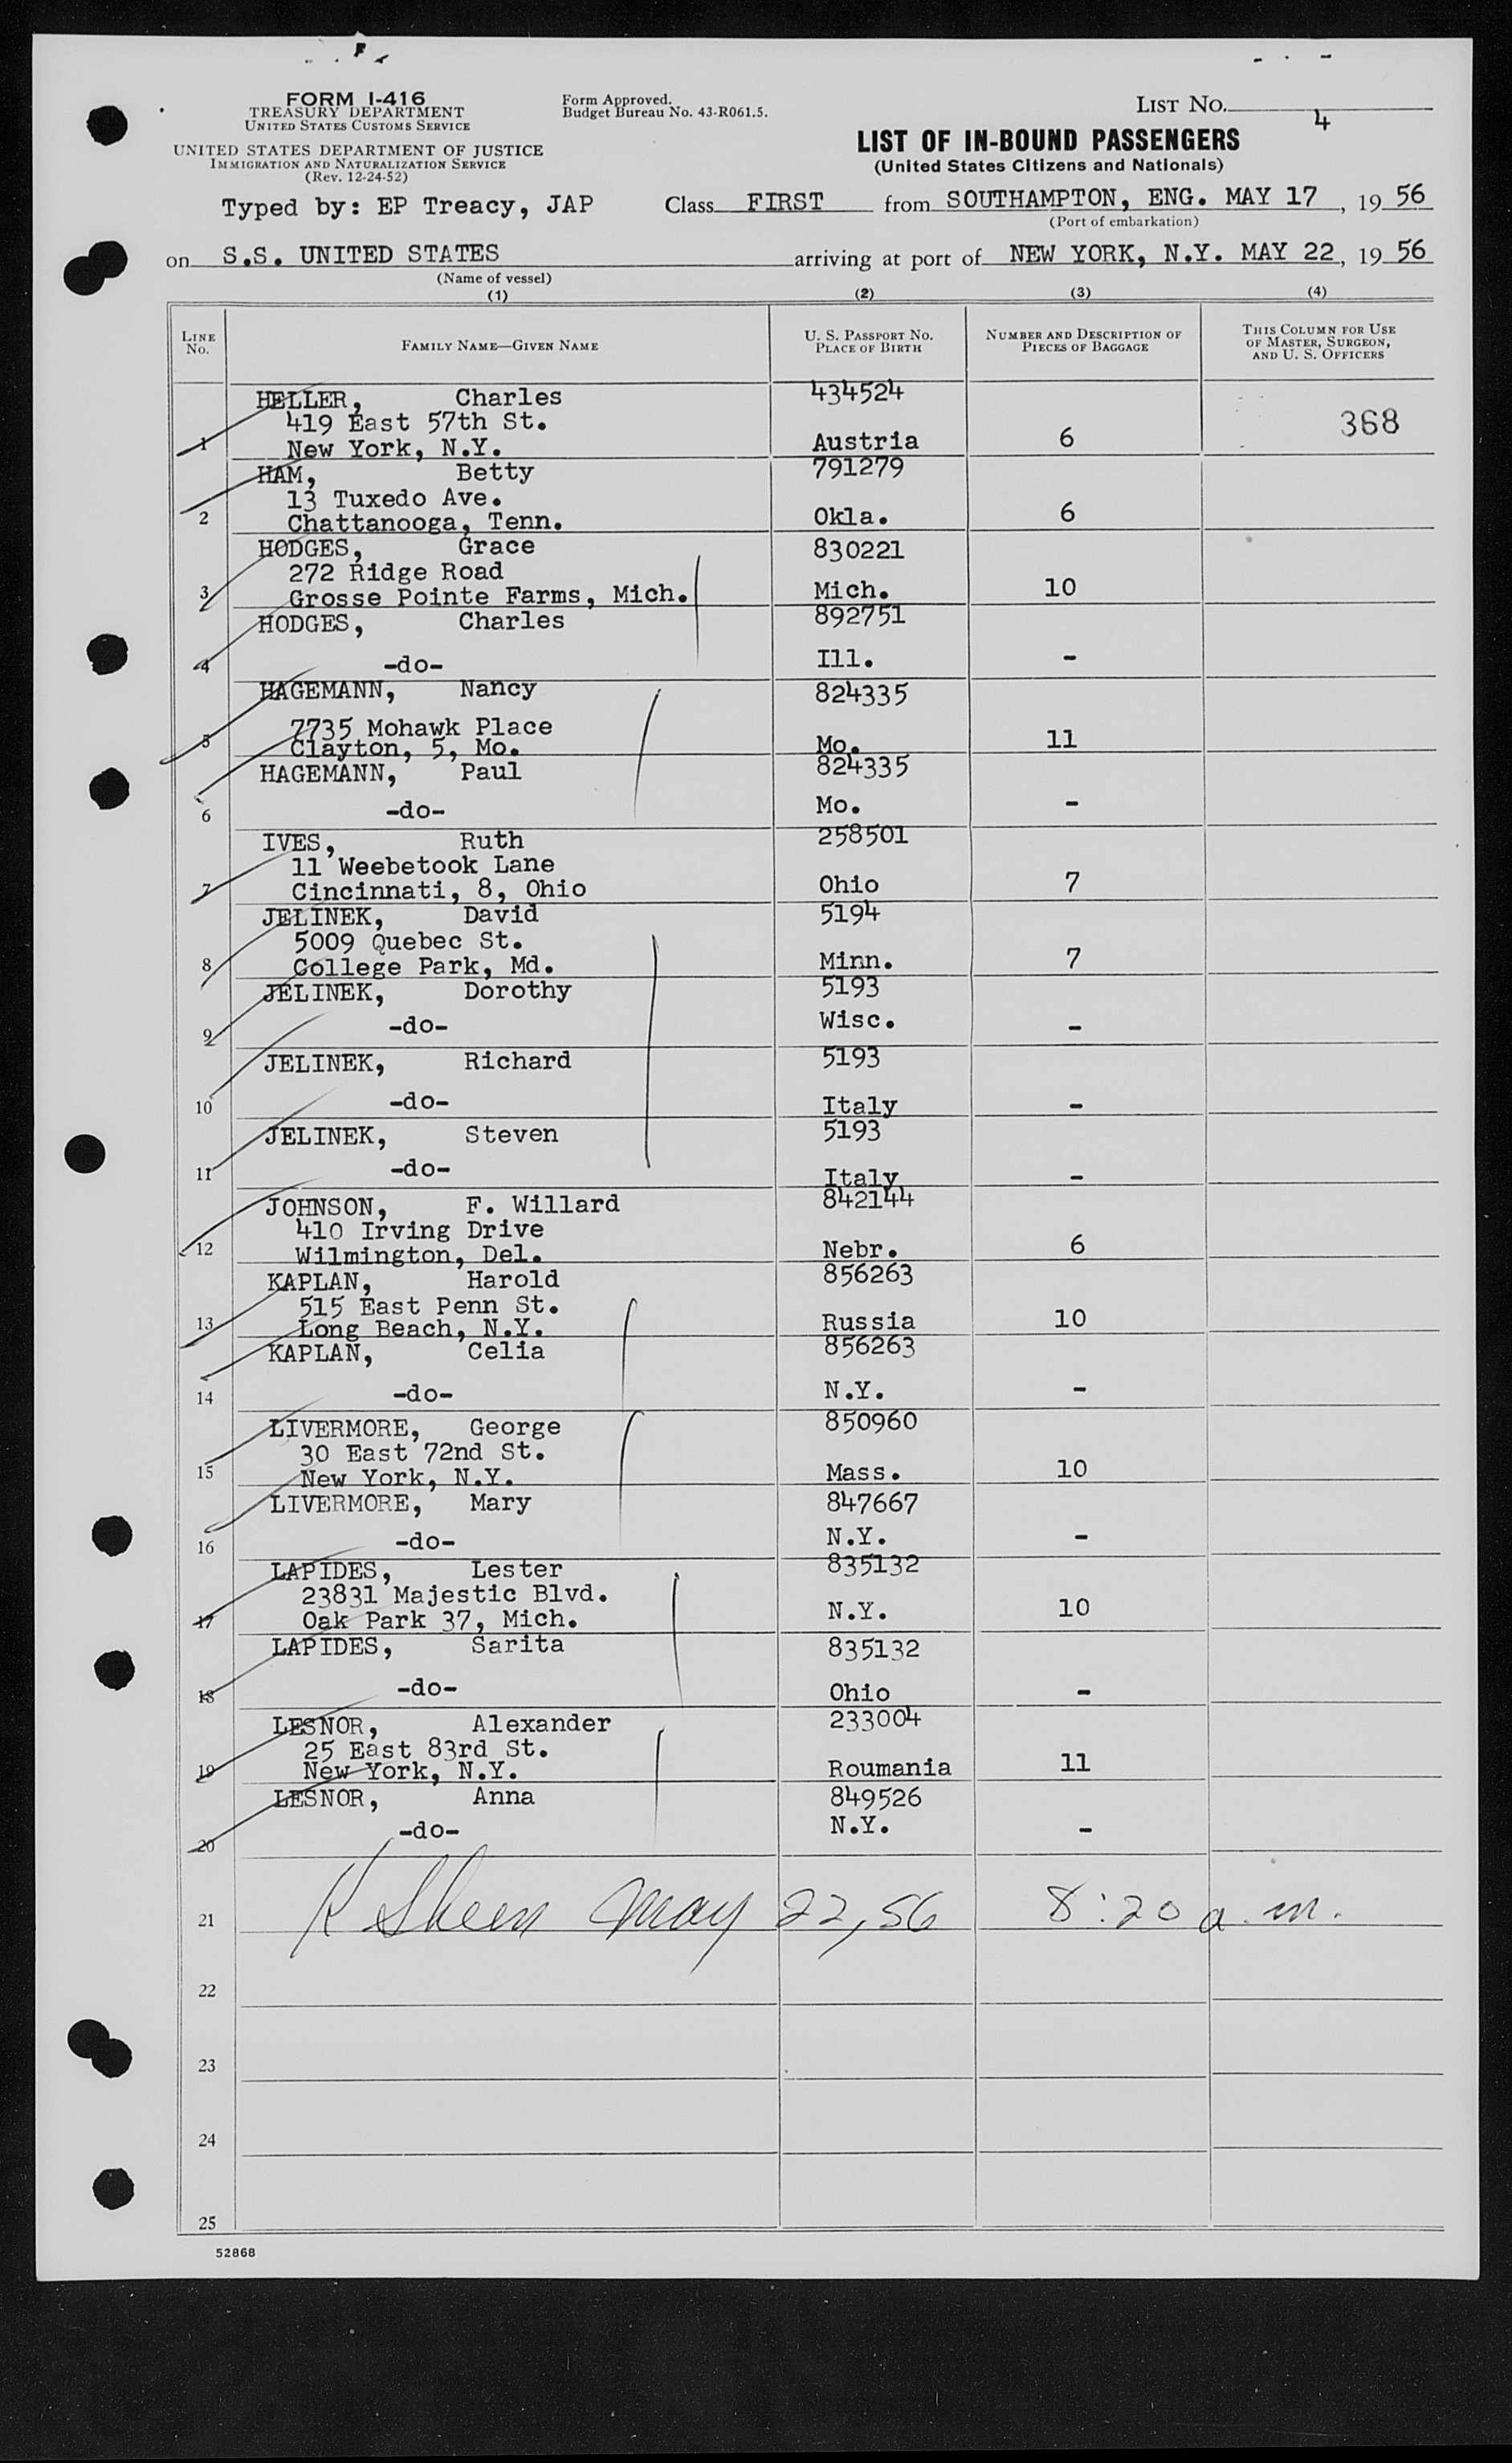 FORM I-416
TREASURY DEPARTMENT
UNITED STATES CUSTOMS SERVICE
UNITED STATES DEPARTMENT OF JUSTICE
IMMIGRATION AND NATURALIZATION SERVICE
(Rev. 12-24-52)
Form Approved.
Budget Bureau No. 43-R061.5.
LIST NO. 4
LIST OF IN-BOUND PASSENGERS
(United States Citizens and Nationals)
Typed by: EP Treacy, JAP Class FIRST from SOUTHAMPTON, ENG. MAY 17, 19 56
(Port of embarkation)
on S.S. UNITED STATES arriving at port of NEW YORK, N.Y. MAY 22, 19 56
(Name of vessel)
(1) (2) (3) (4)
LINE NO. FAMILY NAME—GIVEN NAME U. S. PASSPORT NO. PLACE OF BIRTH NUMBER AND DESCRIPTION OF PIECES OF BAGGAGE THIS COLUMN FOR USE OF MASTER, SURGEON, AND U. S. OFFICERS
HELLER, Charles 434524
419 East 57th St. 368
1 New York, N.Y. Austria 6
HAM, Betty 791279
13 Tuxedo Ave.
2 Chattanooga, Tenn. Okla. 6
HODGES, Grace 830221
272 Ridge Road
3 Grosse Pointe Farms, Mich. Mich. 10
HODGES, Charles 892751
4 -do- Ill. -
HAGEMANN, Nancy 824335
7735 Mohawk Place
5 Clayton, 5, Mo. Mo. 11
HAGEMANN, Paul 824335
6 -do- Mo. -
IVES, Ruth 258501
11 Weebetook Lane
7 Cincinnati, 8, Ohio Ohio 7
JELINEK, David 5194
5009 Quebec St.
8 College Park, Md. Minn. 7
JELINEK, Dorothy 5193
9 -do- Wisc. -
JELINEK, Richard 5193
10 -do- Italy -
JELINEK, Steven 5193
11 -do- Italy -
JOHNSON, F. Willard 842144
410 Irving Drive
12 Wilmington, Del. Nebr. 6
KAPLAN, Harold 856263
515 East Penn St.
13 Long Beach, N.Y. Russia 10
KAPLAN, Celia 856263
14 -do- N.Y. -
LIVERMORE, George 850960
30 East 72nd St.
15 New York, N.Y. Mass. 10
LIVERMORE, Mary 847667
16 -do- N.Y. -
LAPIDES, Lester 835132
23831 Majestic Blvd.
17 Oak Park 37, Mich. N.Y. 10
LAPIDES, Sarita 835132
18 -do- Ohio -
LESNOR, Alexander 233004
25 East 83rd St.
19 New York, N.Y. Roumania 11
LESNOR, Anna 849526
20 -do- N.Y. -
21 K Sheen May 22, 56 8:20 a.m.
22
23
24
25
52868